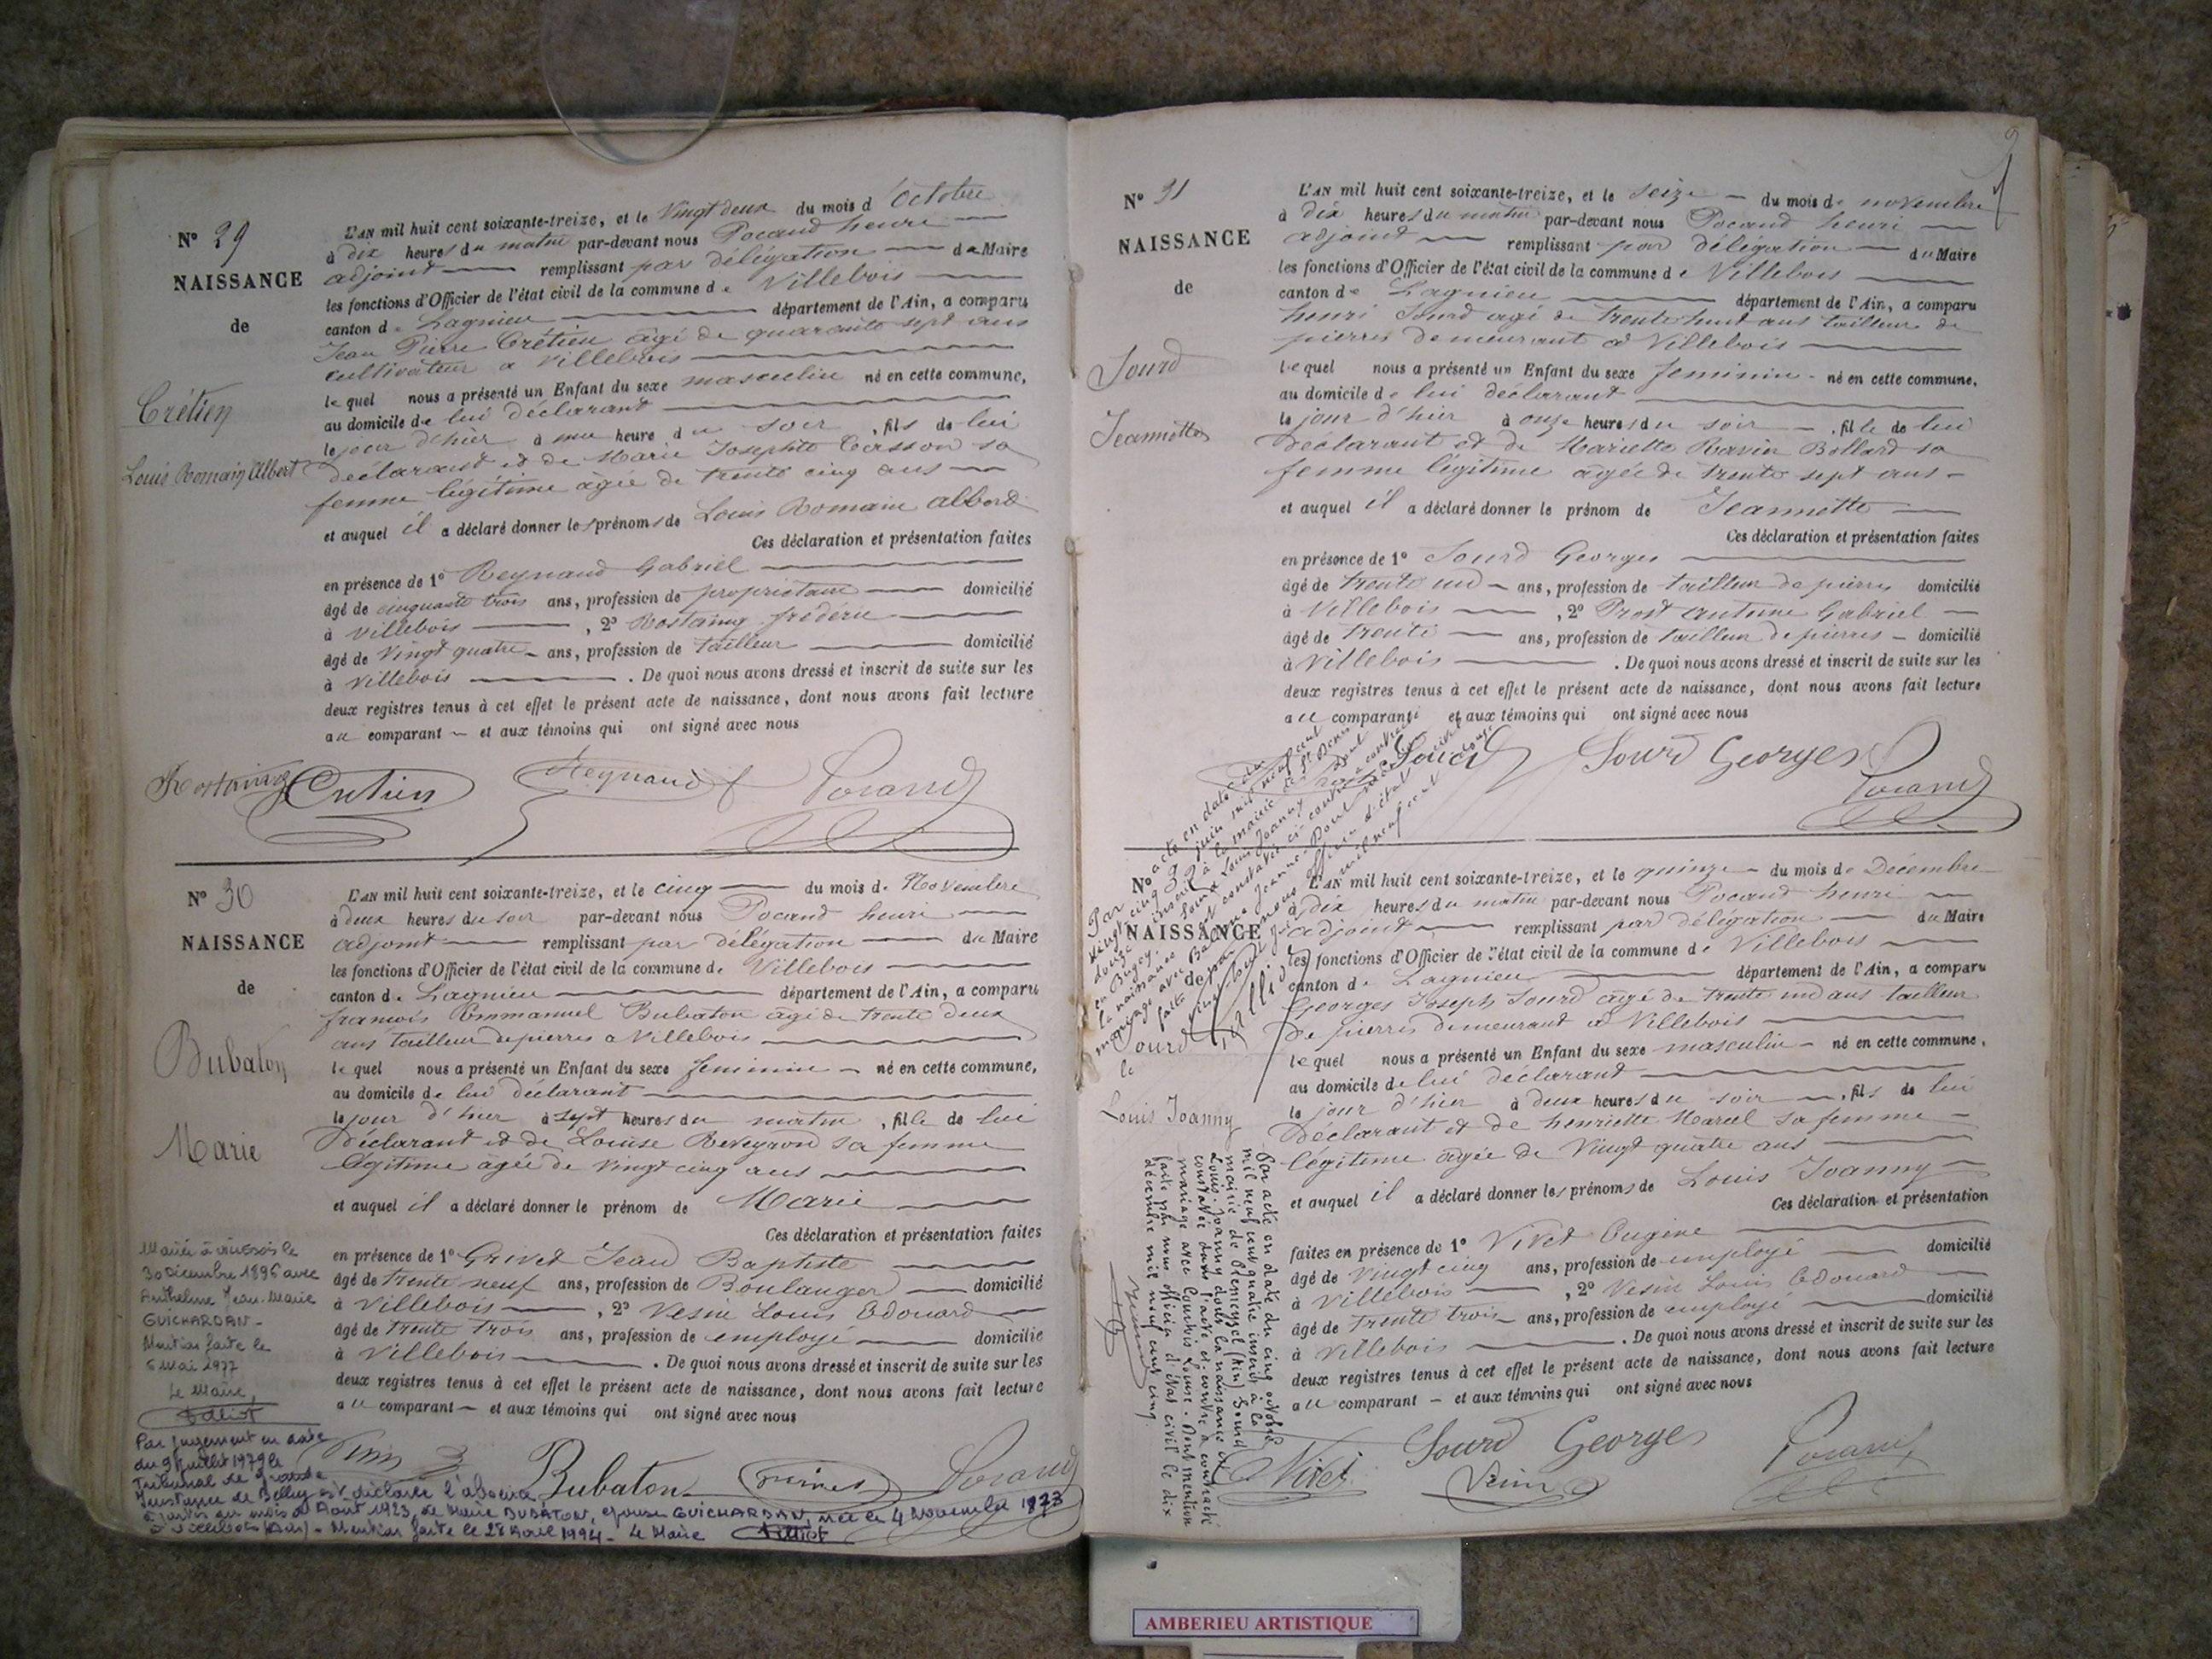 N° 29
NAISSANCE
de
Crétien
Louis Romain Albert
L'AN mil huit cent soixante-treize, et le vingt deux du mois d'Octobre
à dix heures du matin par-devant nous Pocand henri
adjoint remplissant par délégation du Maire
les fonctions d'Officier de l'état civil de la commune de Villebois
canton de Lagnieu département de l'Ain, a comparu
Jean Pierre Crétien âgé de quarante sept ans
cultivateur a Villebois
lequel nous a présenté un Enfant du sexe masculin né en cette commune,
au domicile de lui déclarant
le jour d'hier à une heure du soir, fils de lui
déclarant et de Marie Josephte sa
femme légitime âgée de trente cinq ans
et auquel il a déclaré donner les prénoms de Louis Romain Albert
Ces déclaration et présentation faites
en présence de 1° Reynaud Gabriel
âgé de cinquante trois ans, profession de propriétaire domicilié
à Villebois, 2° Rostaing frédéric
âgé de vingt quatre ans, profession de tailleur domicilié
à Villebois. De quoi nous avons dressé et inscrit de suite sur les
deux registres tenus à cet effet le présent acte de naissance, dont nous avons fait lecture
au comparant et aux témoins qui ont signé avec nous
Rostaing Crétien Reynaud Pocand
N° 30
NAISSANCE
de
Bubaton
Marie
L'AN mil huit cent soixante-treize, et le cinq du mois de Novembre
à deux heures du soir par-devant nous Pocand henri
adjoint remplissant par délégation du Maire
les fonctions d'Officier de l'état civil de la commune de Villebois
canton de Lagnieu département de l'Ain, a comparu
francois Emmanuel Bubaton âgé de trente deux
ans tailleur de pierres a Villebois
lequel nous a présenté un Enfant du sexe feminin né en cette commune,
au domicile de lui déclarant
le jour d'hier à sept heures du matin, fille de lui
déclarant et de Louise Reveyron sa femme
légitime âgée de vingt cinq ans
et auquel il a déclaré donner le prénom de Marie
Ces déclaration et présentation faites
en présence de 1° Grivet Jean Baptiste
âgé de trente neuf ans, profession de Boulanger domicilié
à Villebois, 2° Vesin Louis Edouard
âgé de trente trois ans, profession de employé domicilié
à Villebois. De quoi nous avons dressé et inscrit de suite sur les
deux registres tenus à cet effet le présent acte de naissance, dont nous avons fait lecture
au comparant et aux témoins qui ont signé avec nous
Bubaton Pocand
30 Décembre 1896 avec
Anthelme Jean-Marie
GUICHARDAN-
Mention faite le
6 Mai 1977
Le Maire,
Par jugement en date
du 9 Juillet 1979 le
Tribunal de Grande
Instance de Belley a déclaré l'absence
à partir du mois d'Août 1923, de Marie BUBATON, épouse GUICHARDAN, née le 4 Novembre 1873
à Villebois (Ain) - Mention faite le 28 Avril 1994 - Le Maire
N° 31
NAISSANCE
de
Sourd
Jeannette
L'AN mil huit cent soixante-treize, et le seize du mois de novembre
à dix heures du matin par-devant nous Pocand henri
adjoint remplissant par délégation du Maire
les fonctions d'Officier de l'état civil de la commune de Villebois
canton de Lagnieu département de l'Ain, a comparu
henri Sourd agé de trente huit ans tailleur de
pierres demeurant a Villebois
lequel nous a présenté un Enfant du sexe feminin né en cette commune,
au domicile de lui déclarant
le jour d'hier à onze heures du soir, fille de lui
déclarant et de Mariette Ravin Bollard sa
femme légitime agée de trente sept ans
et auquel il a déclaré donner le prénom de Jeannette
Ces déclaration et présentation faites
en présence de 1° Sourd Georges
âgé de trente un ans, profession de tailleur de pierres domicilié
à Villebois, 2° Prost antoine Gabriel
âgé de trente ans, profession de tailleur de pierres domicilié
à Villebois. De quoi nous avons dressé et inscrit de suite sur les
deux registres tenus à cet effet le présent acte de naissance, dont nous avons fait lecture
au comparant et aux témoins qui ont signé avec nous
Sourd Sourd Georges
Pocand
N° 32
NAISSANCE
de
Sourd
Louis Joanny
L'AN mil huit cent soixante-treize, et le quinze du mois de Décembre
à dix heures du matin par-devant nous Pocand henri
adjoint remplissant par délégation du Maire
les fonctions d'Officier de l'état civil de la commune de Villebois
canton de Lagnieu département de l'Ain, a comparu
Georges Joseph Sourd âgé de trente un ans tailleur
de pierres demeurant a Villebois
lequel nous a présenté un Enfant du sexe masculin né en cette commune,
au domicile de lui déclarant
le jour d'hier à deux heures du soir, fils de lui
déclarant et de henriette Marcel sa femme
légitime agée de vingt quatre ans
et auquel il a déclaré donner les prénoms de Louis Joanny
Ces déclaration et présentation
faites en présence de 1° Vivet Eugène
âgé de vingt cinq ans, profession de employé domicilié
à Villebois, 2° Vesin Louis Edouard
âgé de trente trois ans, profession de employé domicilié
à Villebois. De quoi nous avons dressé et inscrit de suite sur les
deux registres tenus à cet effet le présent acte de naissance, dont nous avons fait lecture
au comparant et aux témoins qui ont signé avec nous
Vivet Sourd Georges Vesin Pocand
Par acte en date du cinq octobre
mil neuf cent quatre inscrit à la
mairie de (Ain) Sourd
Louis Joanny dont la naissance est
constatée dans l'acte ci-contre a contracté
mariage avec Louise. Dont mention
faite par nous officier d'état civil le dix
décembre mil neuf cent cinq
AMBERIEU ARTISTIQUE